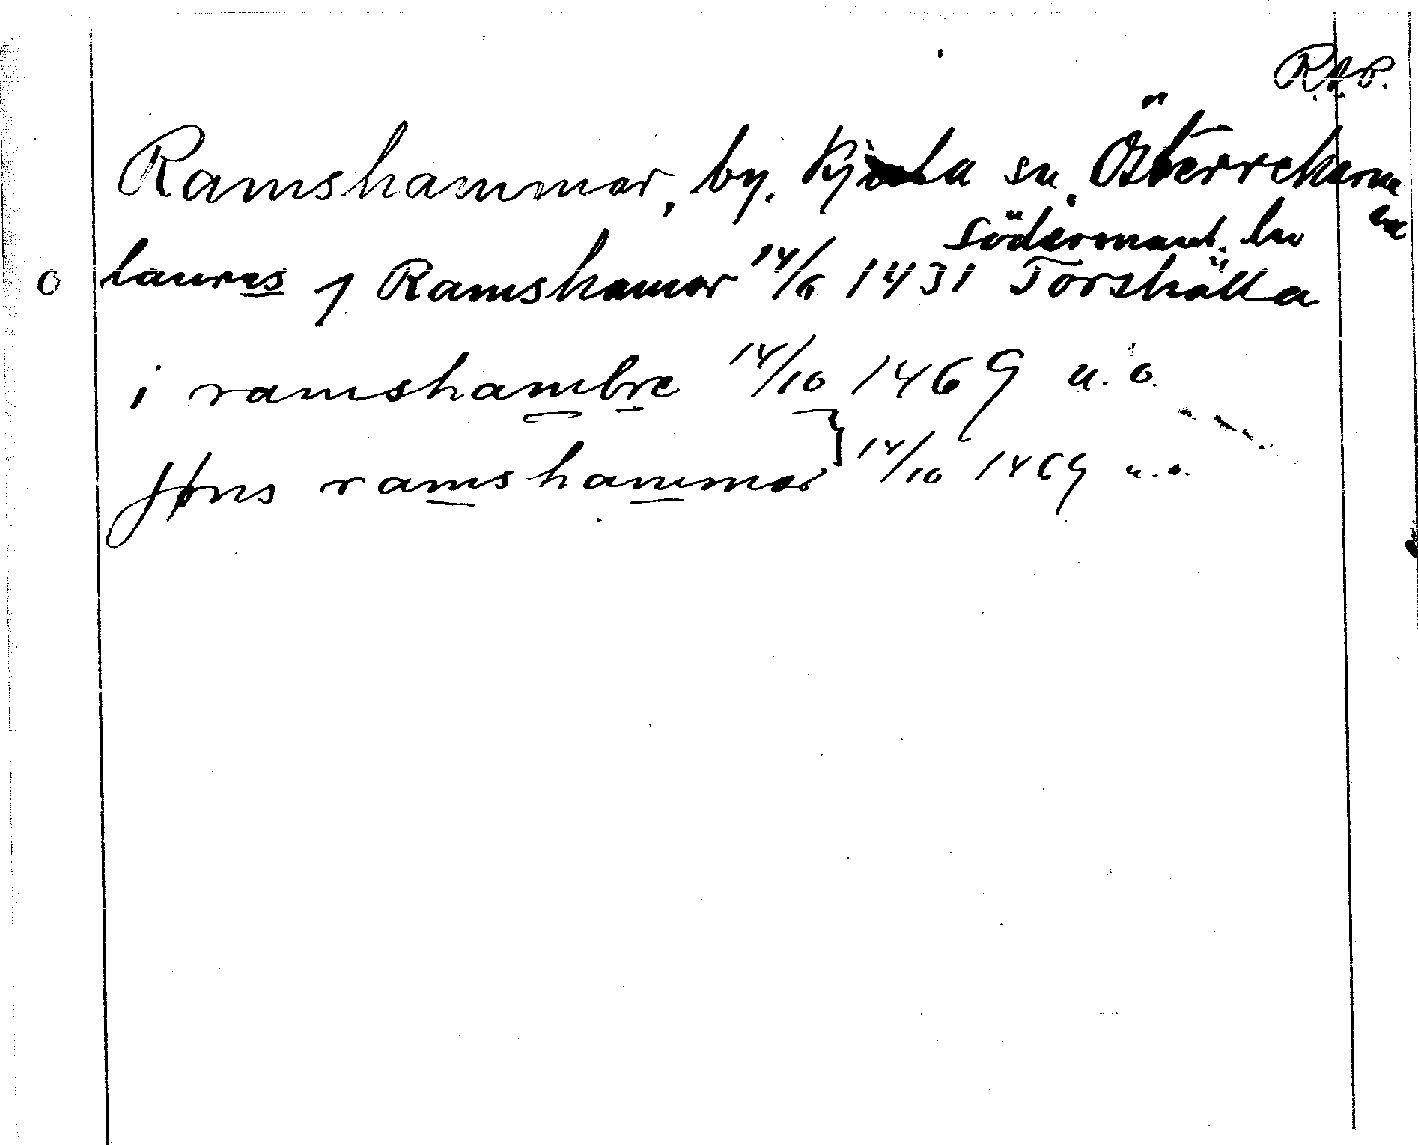 R.A.P.
Ramshammar, by. Kjula sn. Österrekarne
Södermanl. ln
laures j Ramshamar 14/6 1431 Torshälla
i ramshambre 14/10 1469 u.o.
Jøns ramshammar } 14/10 1469 u.o.